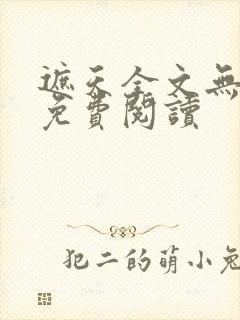 遮天全文無
免費閱讀
犯二的萌小兔